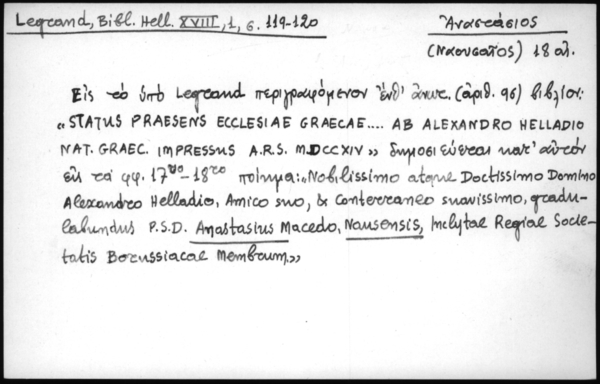 Legrand, Bibl. Hell. XVIII, 1, σ. 119-120
Ἀναστάσιος
(Ναουσαῖος) 18 αἰ.
Εἰς τὸ ὑπὸ Legrand περιγραφόμενον ἔνθ' ἀνωτ. (ἀριθ. 96) βιβλίον:
«STATUS PRAESENS ECCLESIAE GRAECAE.... AB ALEXANDRO HELLADIO
NAT. GRAEC. IMPRESSUS A.R.S. MDCCXIV» δημοσιεύεται κατ' αὐτὸν
εἰς τὰ φφ. 17νο-18ro ποίημα: «Nobilissimo atque Doctissimo Domino
Alexandro Helladio, Amico suo, & Conterraneo suavissimo, gradu-
labundus P.S.D. Anastasius Macedo, Nausensis, Inclytae Regiae Socie-
tatis Borussiacae Membrum.»